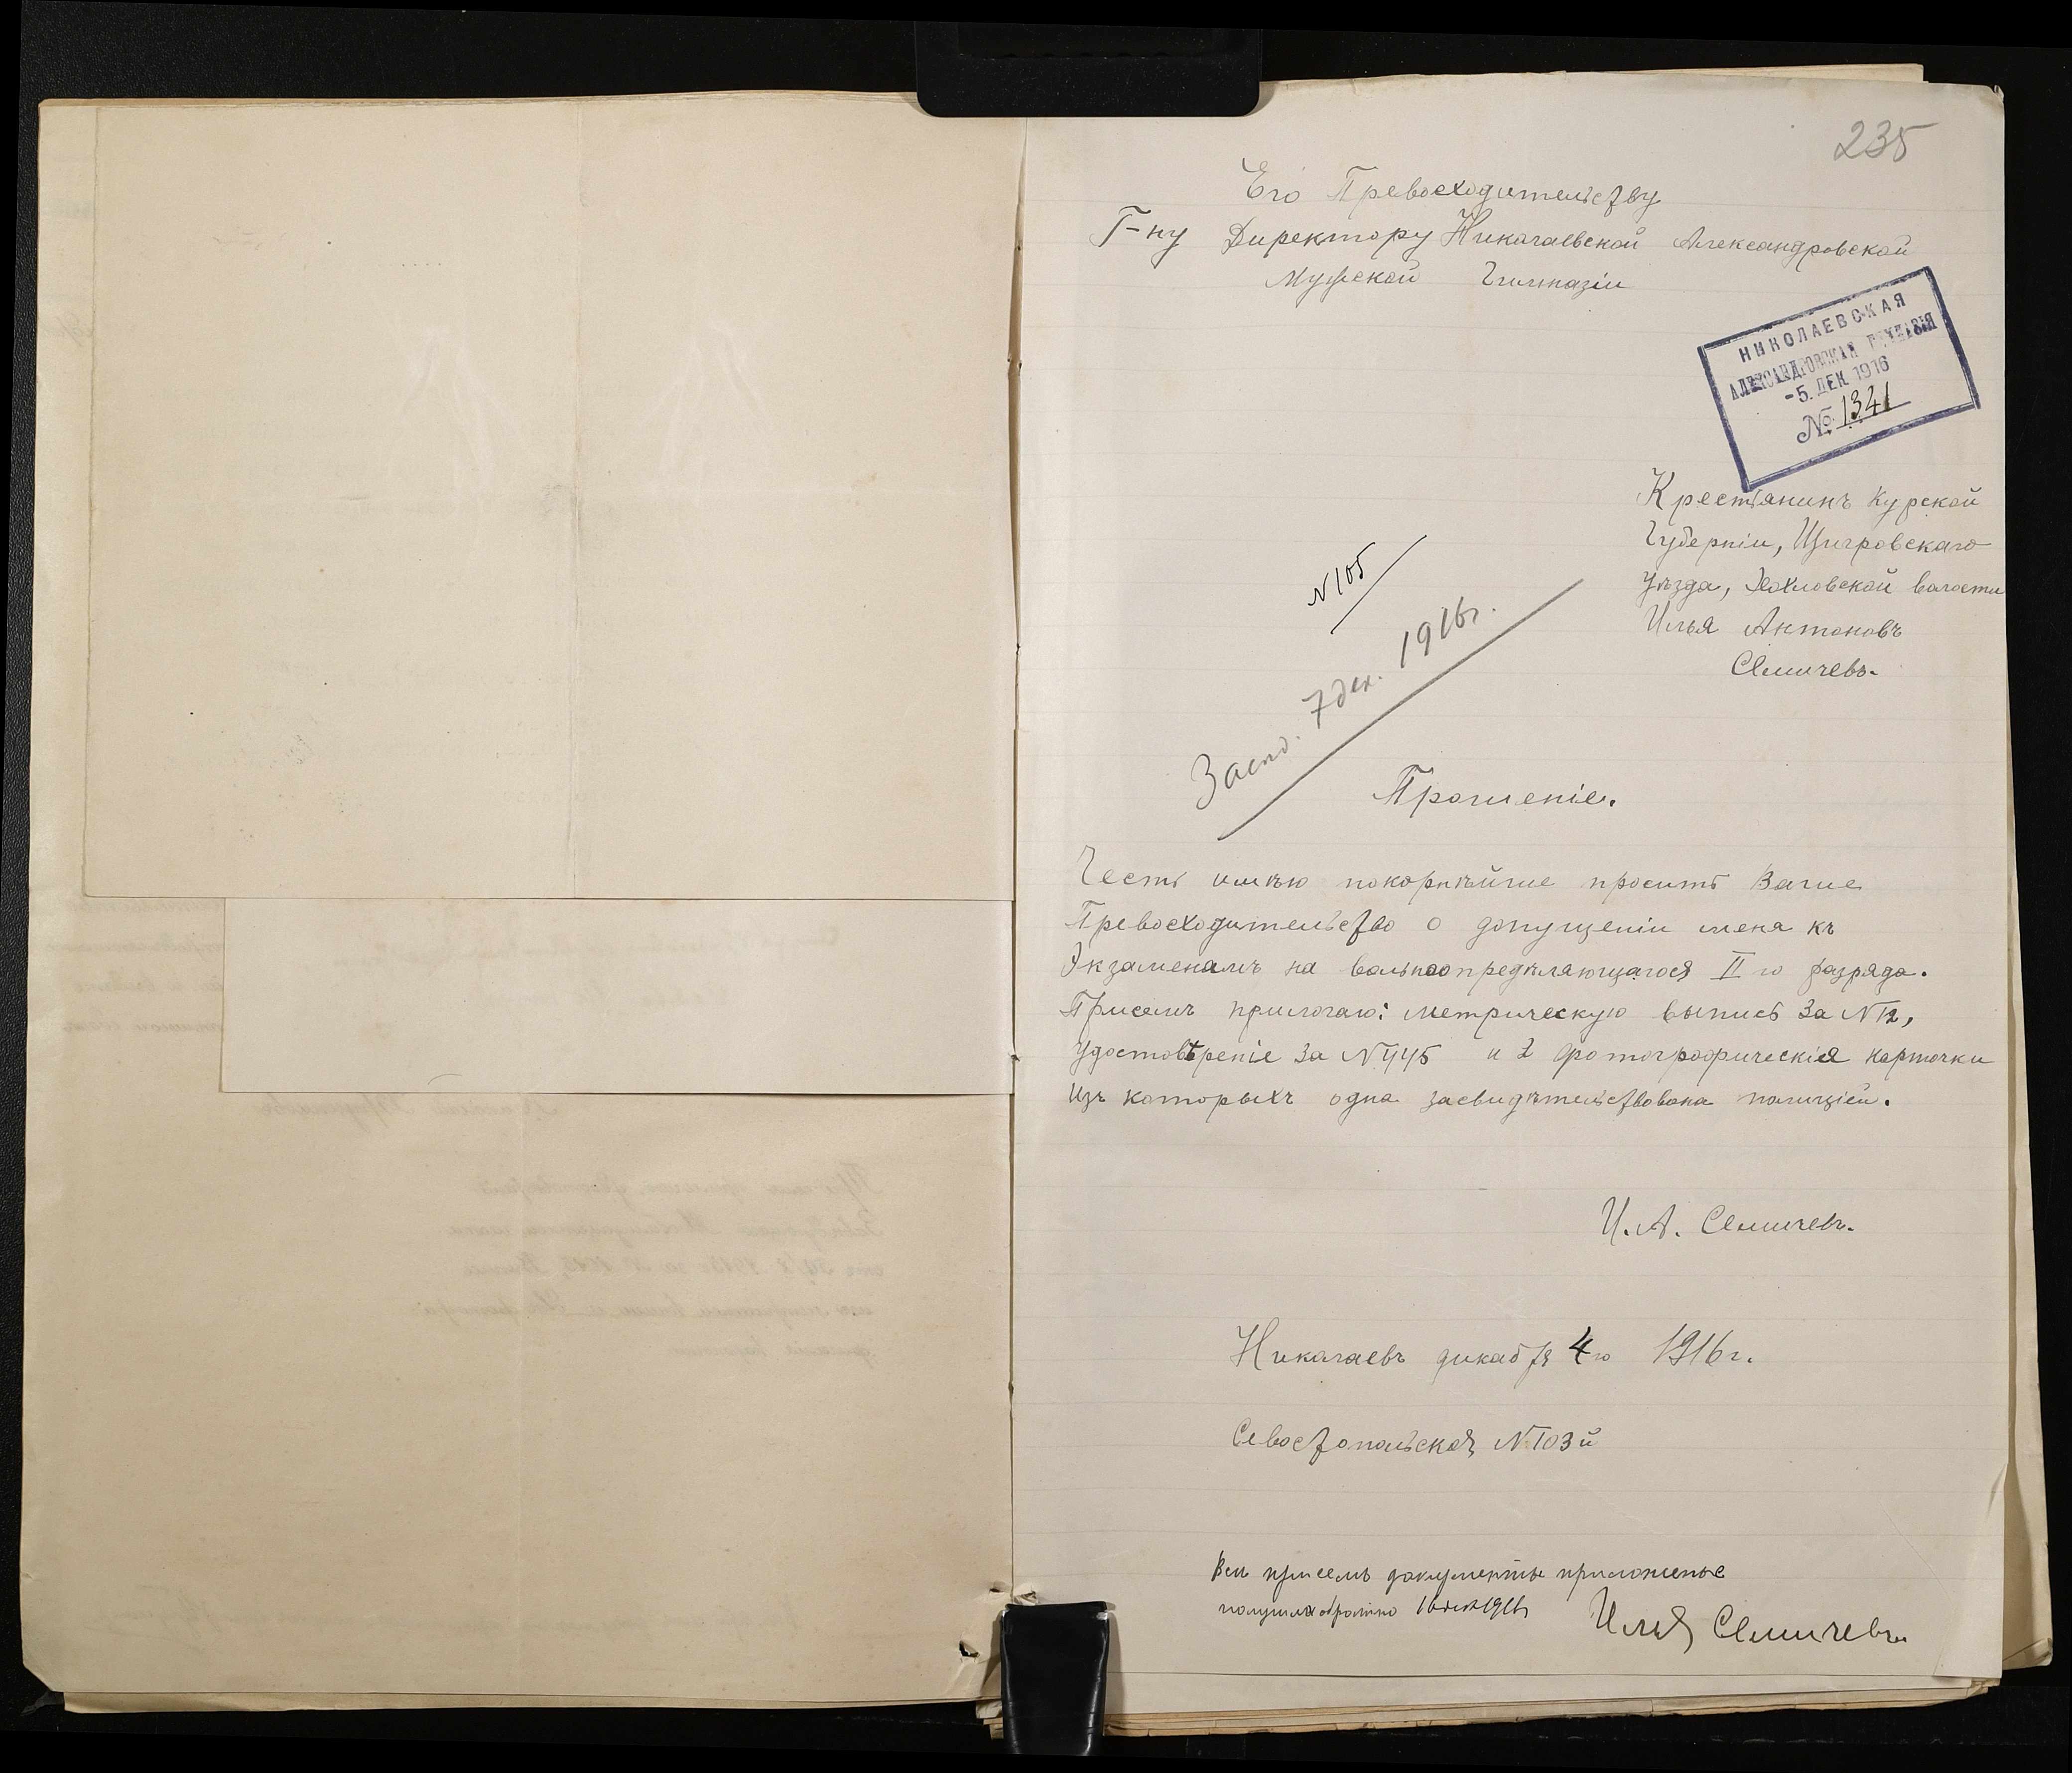 235
Его Превосходительству
Г-ну Директору Николаевской Александровской
Мужской Гимназіи
НИКОЛАЕВСКАЯ
АЛЕКСАНДРОВСКАЯ ГИМНАЗІЯ
-5. ДЕК 1916
№ 1341
Крестьянинъ Курской
Губерніи, Щигровскаго
Уѣзда, Хохловской валости
Илья Антоновъ
Семичевъ.
N 105
7 дек. 1916г.
Прошеніе.
Честь имѣю покорнѣйше просить Ваше
Превосходительство о допущеніи меня къ
Экзаменамъ на вольноопредѣляющагося II го разряда.
Присемъ прилогаю: метрическую выпись за N 12,
Удостовѣреніе за N 445 и 2 фотографическія карточки
изъ которыхъ одна засвидѣтельствована полиціей.
И. А. Семичевъ.
Николаевъ дикабря 4го 1916 г.
Севостопольская N 103й
Всѣ присемъ документы приложеные
получилъ обратно 1916г
Илья Семичевъ